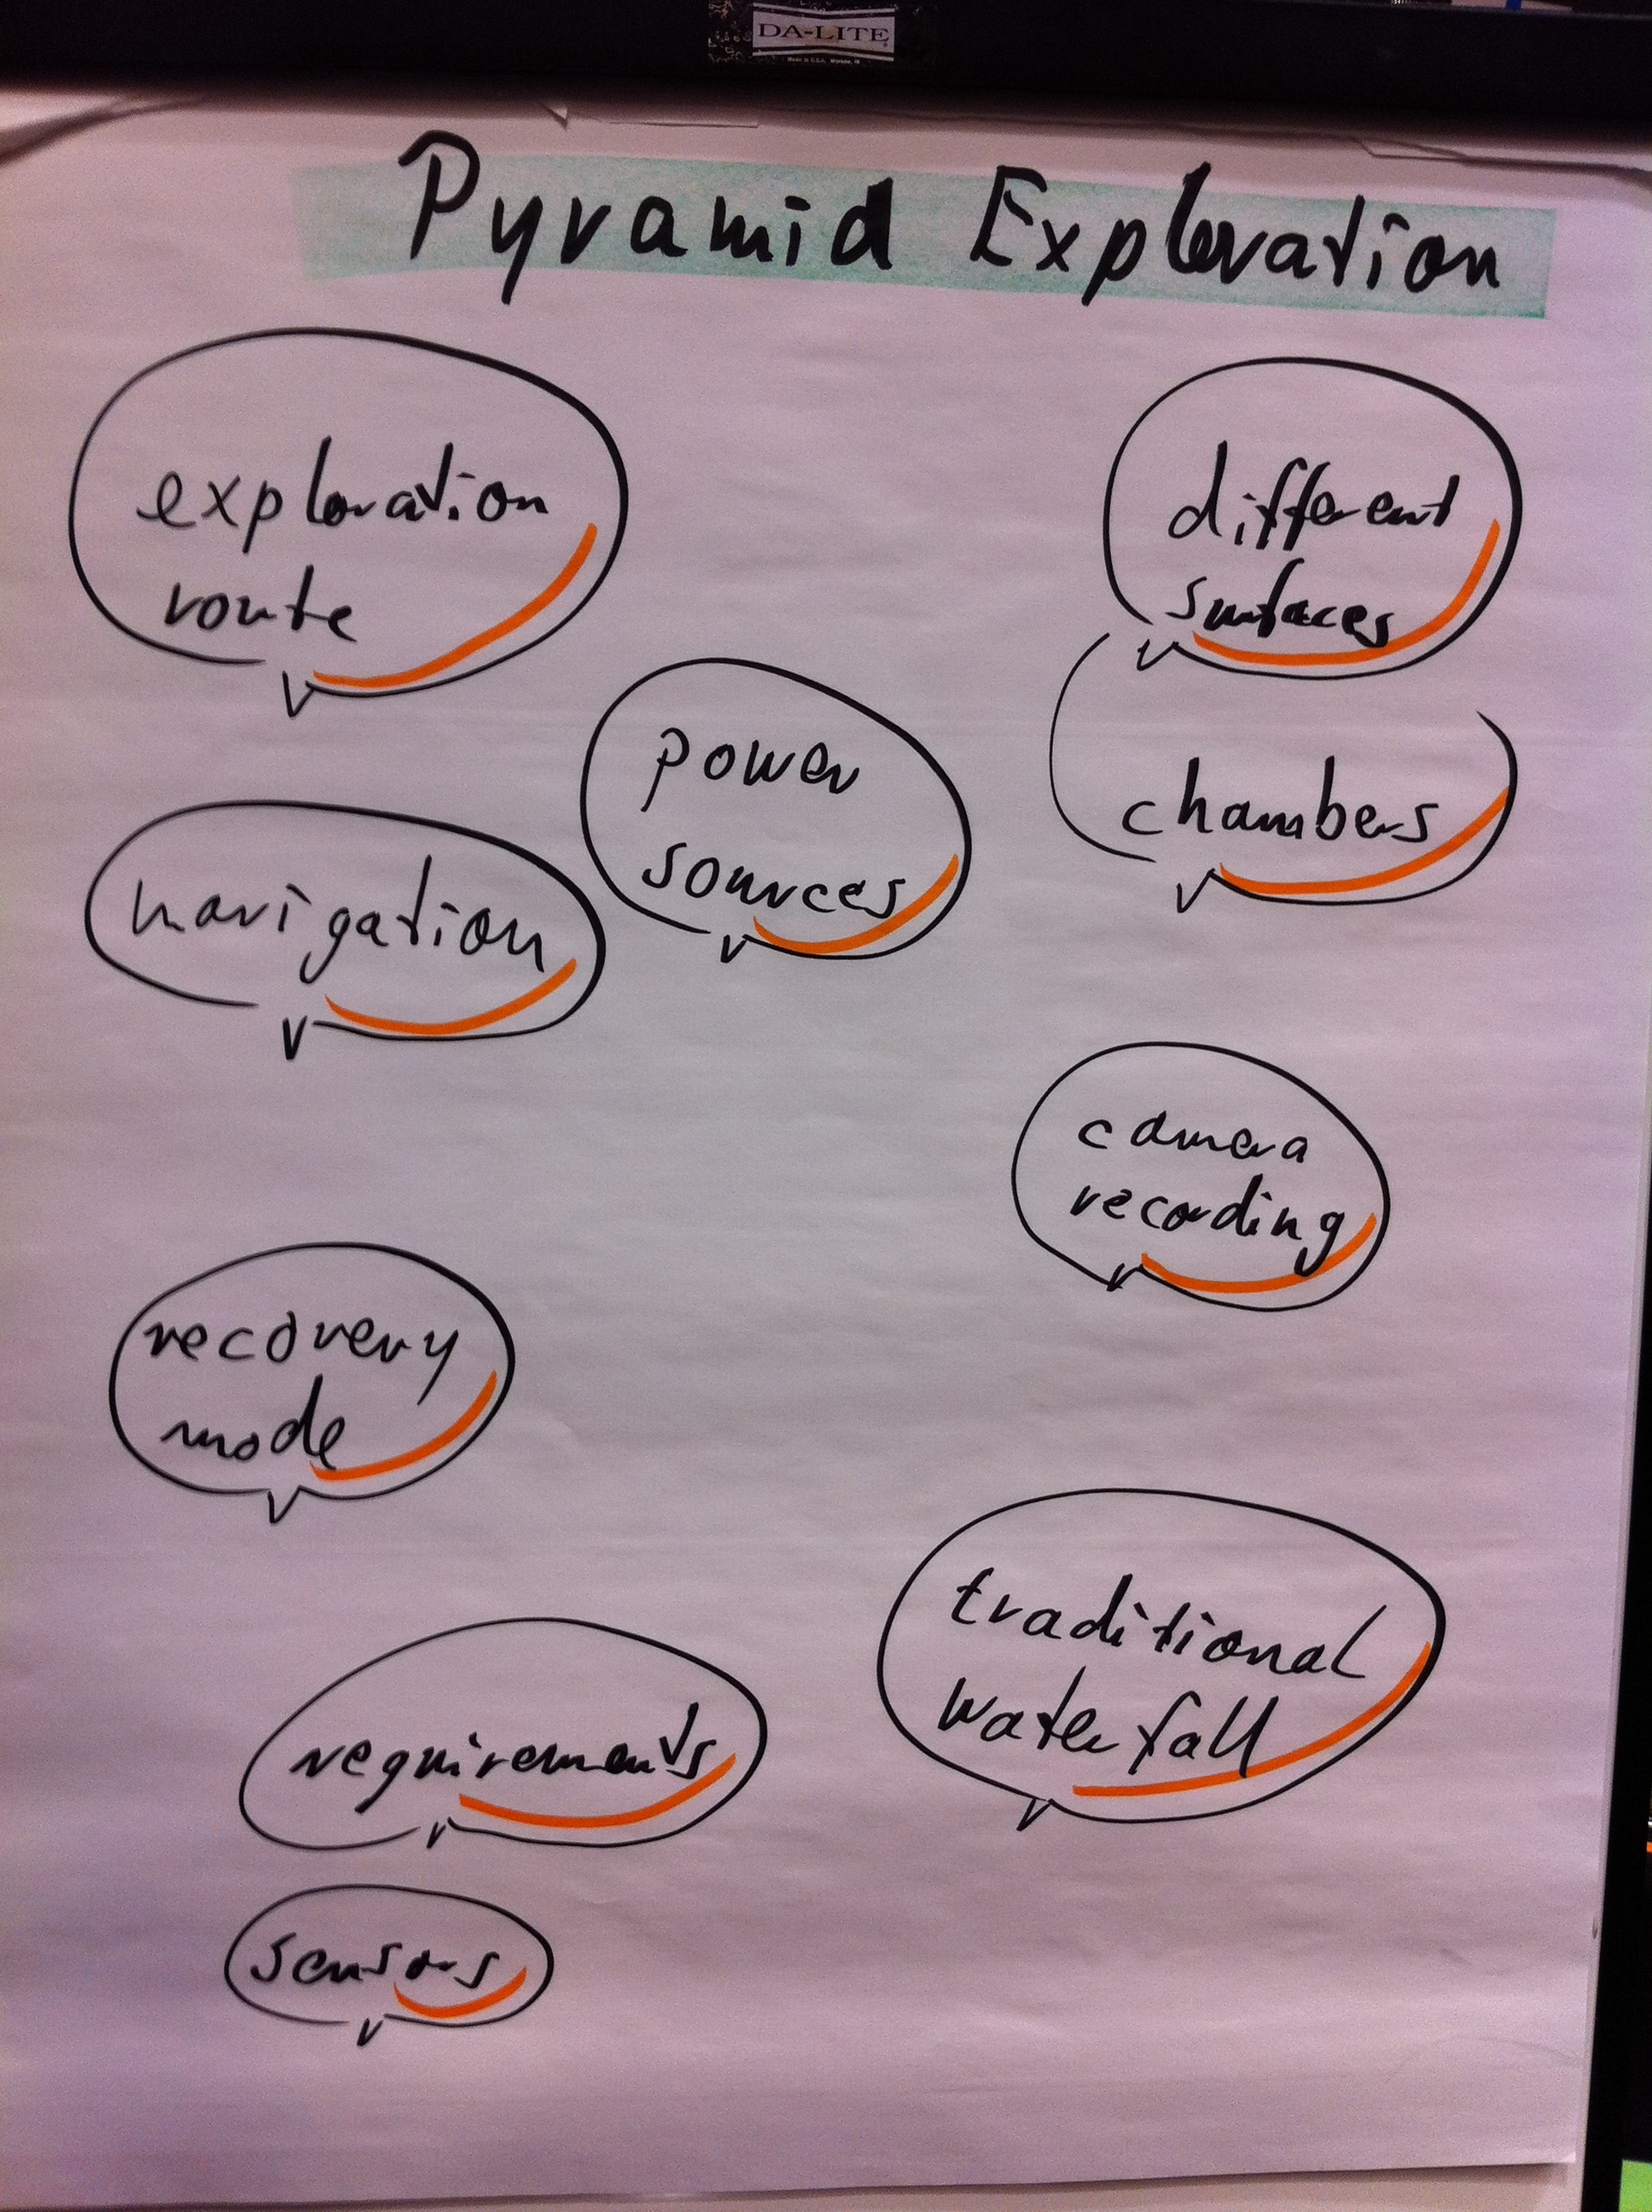 DA-LITE
Made in U.S.A. Warsaw, IN
Pyramid Exploration
exploration
route
different
surfaces
power
sources
chambers
navigation
camera
recording
recovery
mode
traditional
waterfall
requirements
sensors